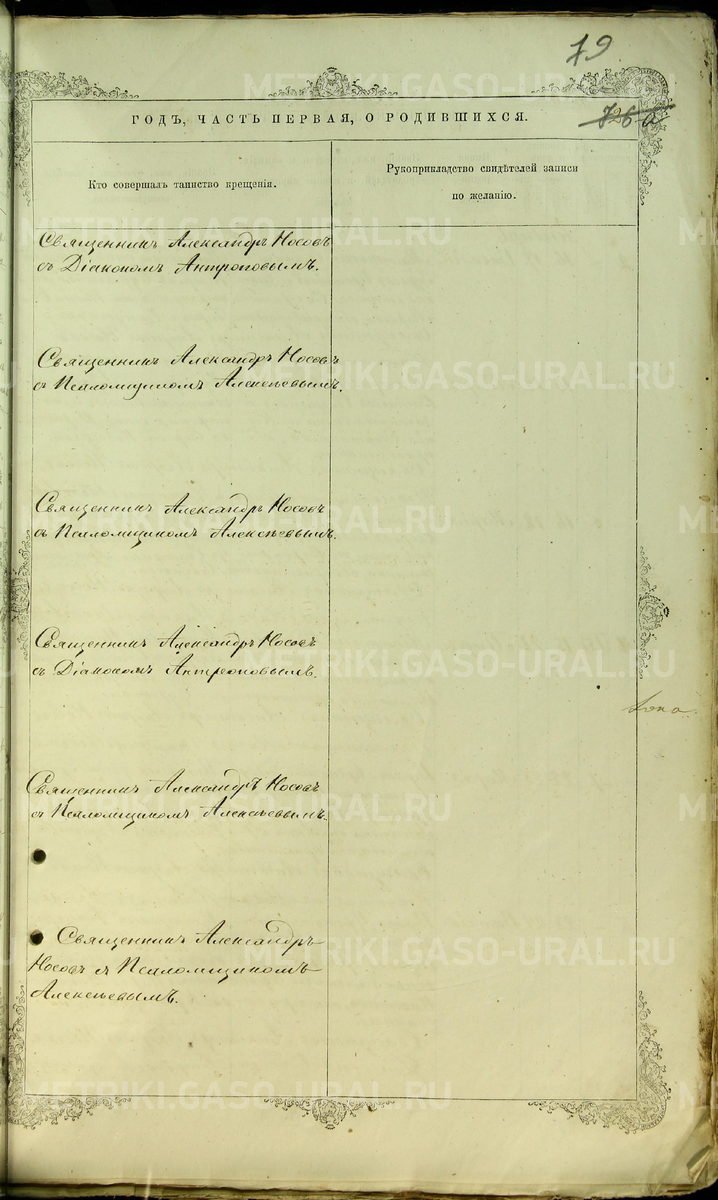 79
726 а
ГОДЪ, ЧАСТЬ ПЕРВАЯ, О РОДИВШИХСЯ.
Кто совершалъ таинство крещенія.
Рукоприкладство свидѣтелей записи
по желанію.
Священникъ Александръ Носовъ
съ Діакономъ Антроповымъ.
Священникъ Александръ Носовъ
съ Псаломщикомъ Алексѣевымъ.
Священникъ Александръ Носовъ
съ Псаломщикомъ Алексѣевымъ.
Священникъ Александръ Носовъ
съ Діакономъ Антроповымъ.
Священникъ Александръ Носовъ
съ Псаломщикомъ Алексѣевымъ.
Священникъ Александръ
Носовъ съ Псаломщикомъ
Алексѣевымъ.
METRIKI.GASO-URAL.RU